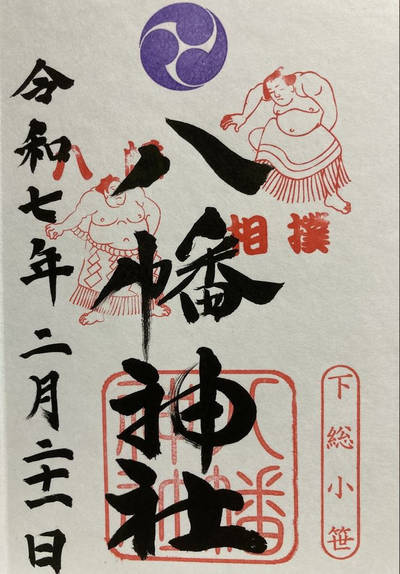 下総小笹
八
相撲
八幡神社
八幡
神社
令和七年二月二十一日